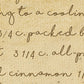 to a cooling
3/4 c. packed b
3 1/4 c. all-p
cinnamon